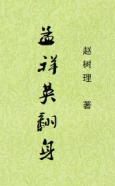 孟祥英翻身
赵树理 著